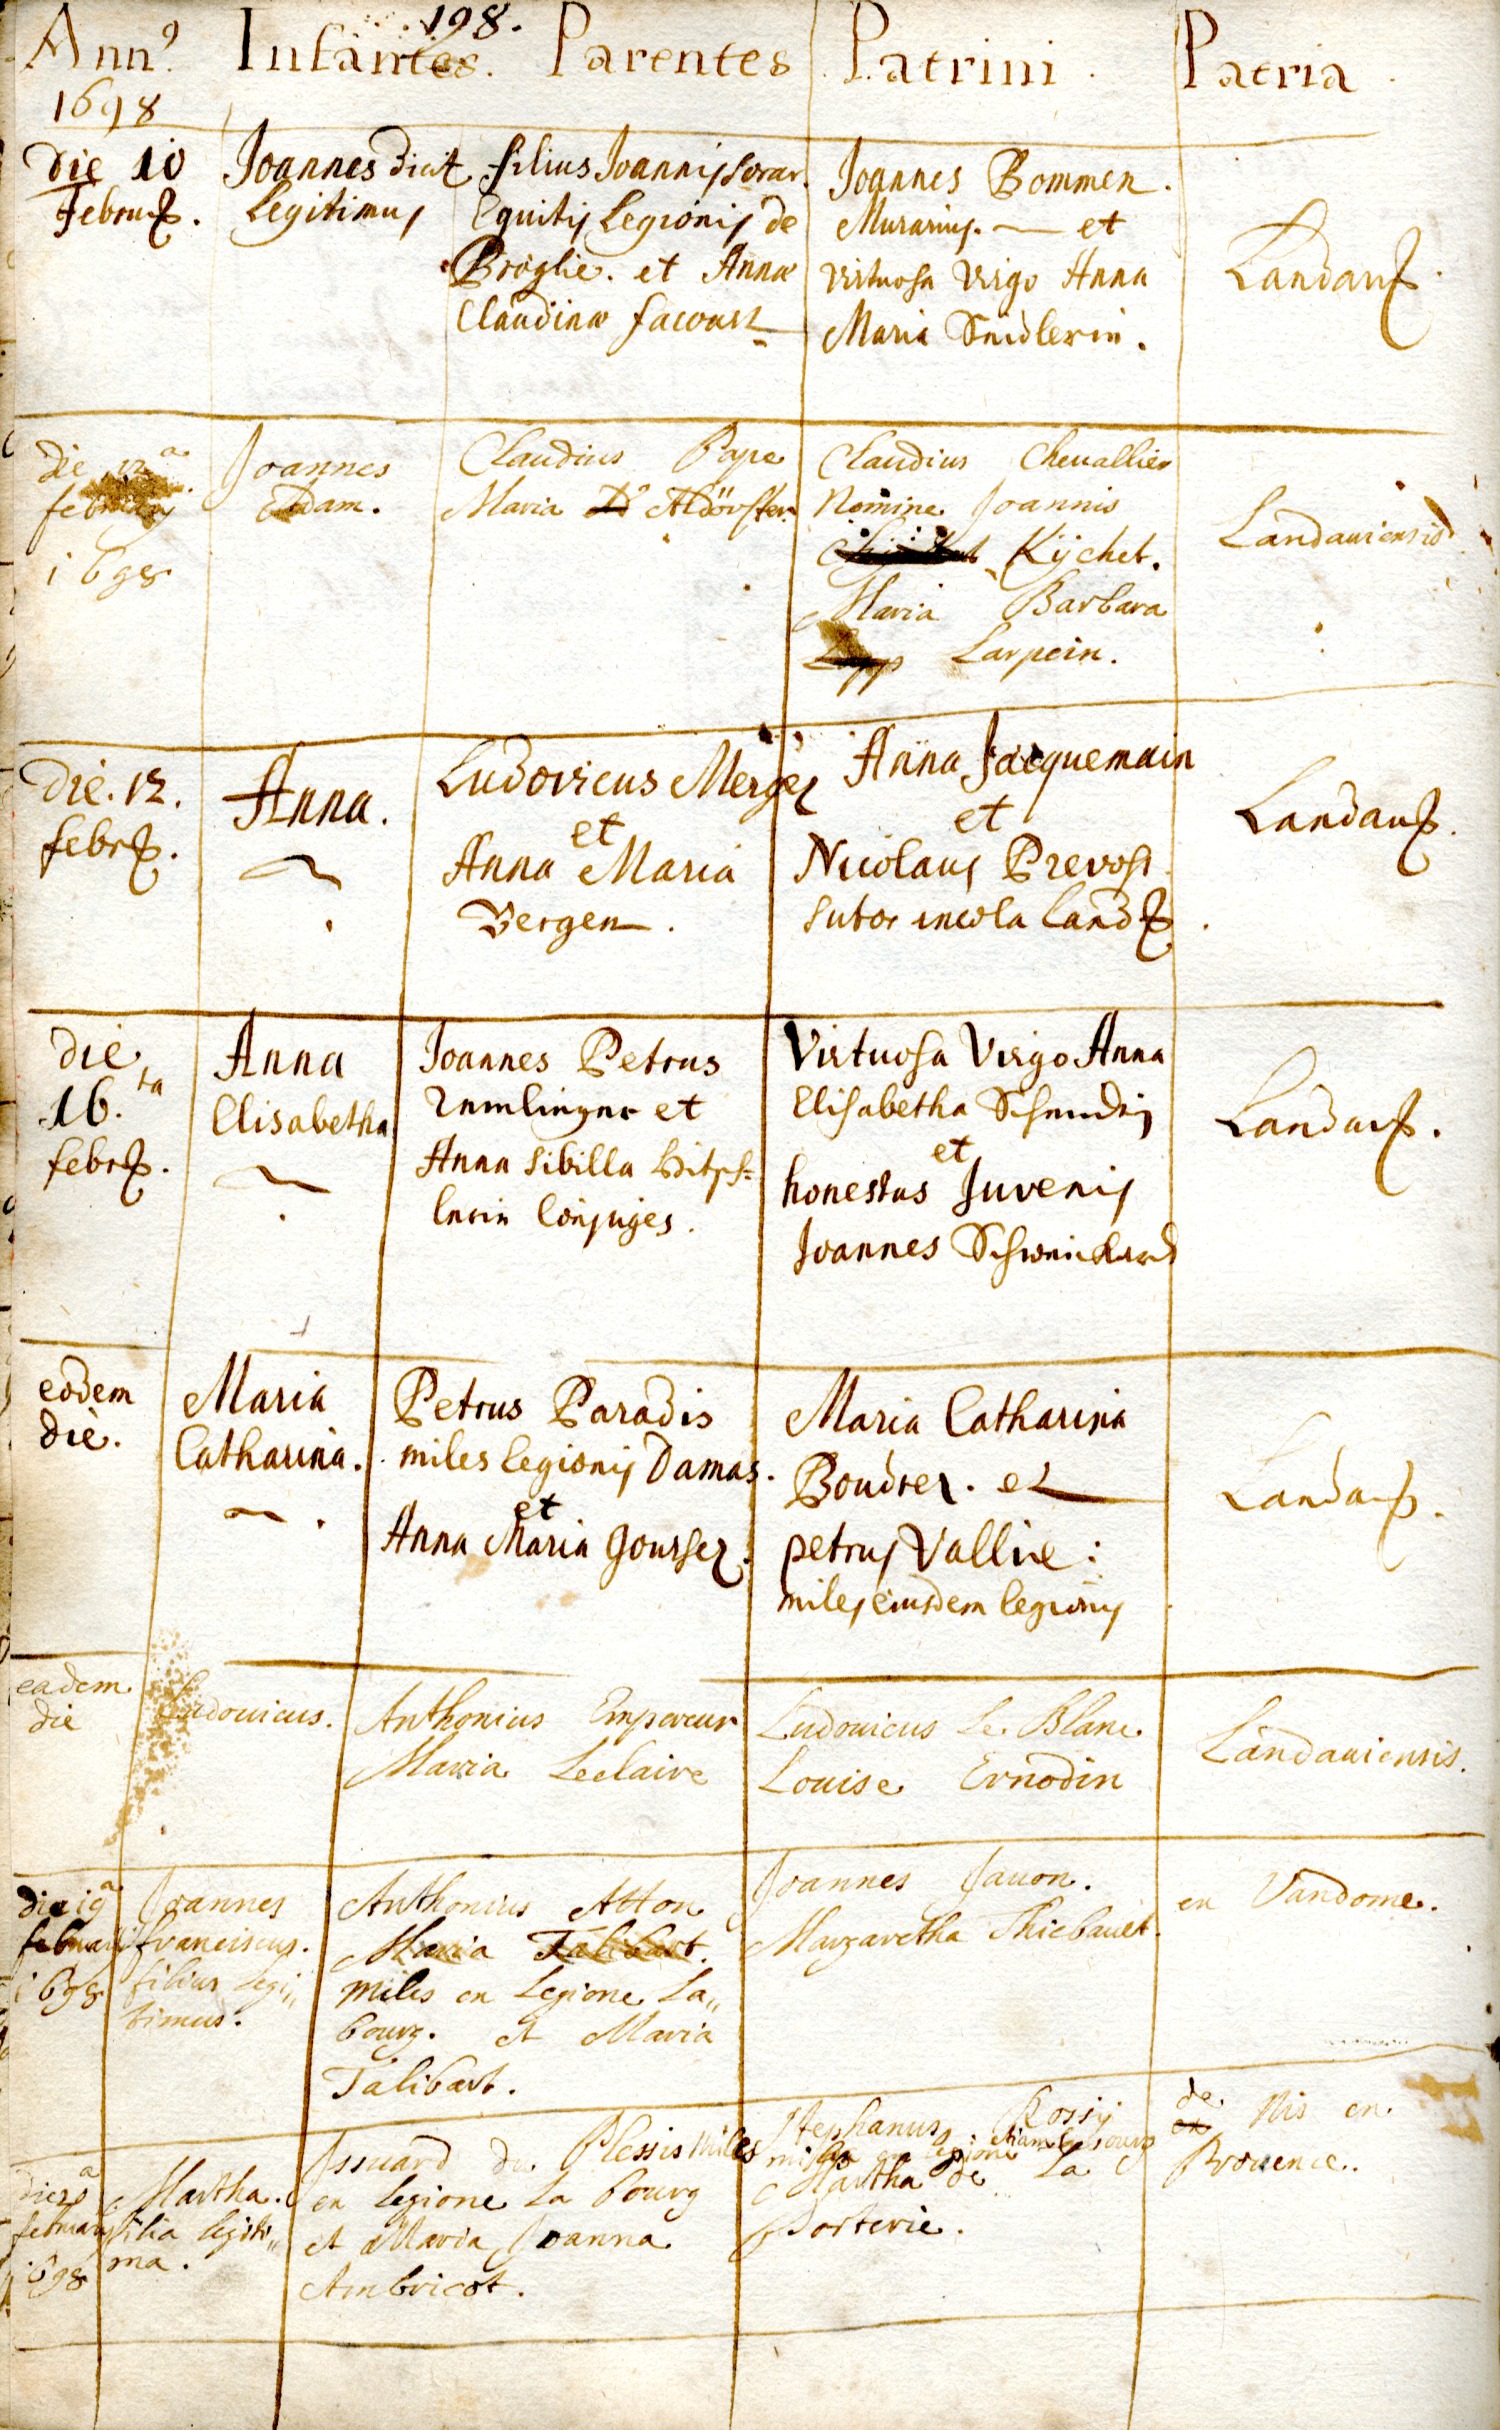 198.
Ann⁹ Infantes. Parentes Patrini. Patria.
1698
die 10
Februͥ.
Joannes dict
Legitimus
filius Joannis
Equitis Legionis de
Broglie. et Annæ
Claudinæ
Joannes Bommen.
Murarius. — et
virtuosa virgo Anna
Maria Seidlerin.
Landau.
die 12ᵃ
februarij
1698
Joannes
Adam.
Claudius Pape
Maria Aldörffer
Claudius Cheuallier
Nomine Joannis
Kijchet.
Maria Barbara
Larpein.
Landauiensis
die. 12.
febr.
Anna.
Ludovicus Merger
et
Anna Maria
Bergen.
Anna Jacquemain
et
Nicolaus Prevost
sutor incola Land.
Landau.
die
16.ta
febr.
Anna
Elisabetha
Joannes Petrus
et
Anna Sibilla
Conjuges.
Virtuosa Virgo Anna
Elisabetha
et
honestus Juvenis
Joannes Schweickard
Landau.
eodem
die.
Maria
Catharina.
Petrus Paradis
miles legionis Damas.
et
Anna Maria
Maria Catharina
et
petrus Vallie:
miles eiusdem legionis
Landau.
eadem
die
Ludouicus.
Anthonius Empereur
Maria Leclaire
Ludouicus Le Blanc
Louise Ernodin
Landauiensis.
die 19ᵃ
februarij
1698
Joannes
franciscus.
filius Legi„
timus.
Anthonius Atton
Maria Talibart.
miles en Legione La„
bourg. et Maria
Talibart.
Joannes Jauon.
Margaretha Thiebault.
en Vandome.
februarij
1698
Martha.
filia legiti„
ma.
Issuard du Plessis miles
en legione La bourg
et Maria Joanna
Ambricot.
Stephanus Rossij
miles en legione
Martha de La
Porterie.
de Nis en
Prouence.